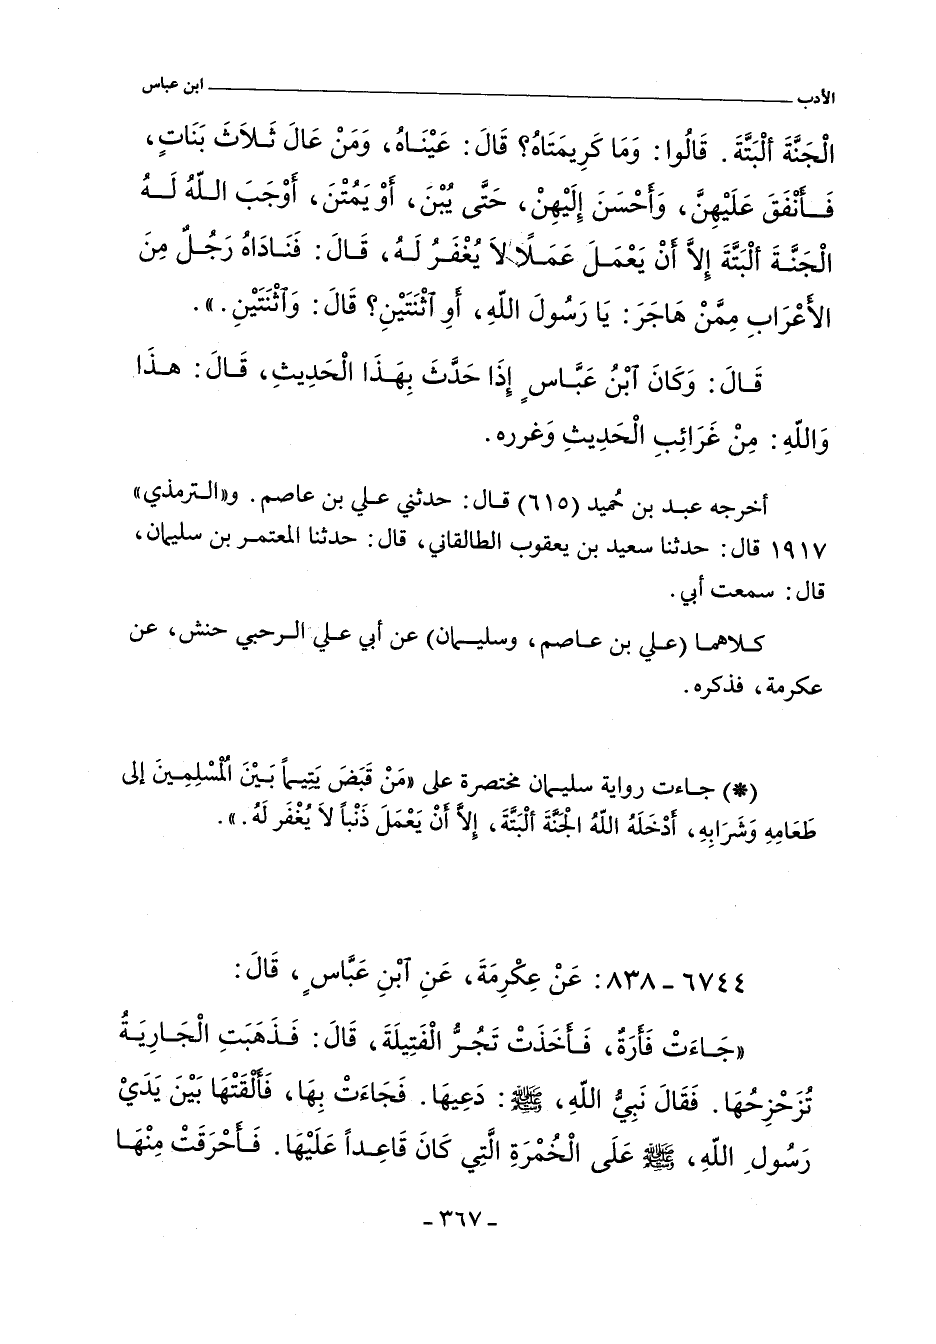 الأدب ـــــــــــــــــ ابن عباس
الْجَنَّةَ ألْبَتَّةَ. قَالُوا: وَمَا كَرِيمَتَاهُ؟ قَالَ: عَيْنَاهُ، وَمَنْ عَالَ ثَلاَثَ بَنَاتٍ،
فَأَنْفَقَ عَلَيْهِنَّ، وَأَحْسَنَ إِلَيْهِنْ، حَتَّى يُبْنَ، أَوْ يَمُتْنَ، أَوْجَبَ اللّهُ لَهُ
الْجَنَّةَ ألْبَتَّةَ إِلاَّ أَنْ يَعْمَلَ عَمَلًا لاَ يُغْفَرُ لَهُ، قَالَ: فَنَادَاهُ رَجُلٌ مِنَ
الأَعْرَابِ مِمَّنْ هَاجَرَ: يَا رَسُولَ اللّهِ، أَوِ ٱثْنَتَيْنِ؟ قَالَ: وَٱثْنَتَيْنِ.».
قَالَ: وَكَانَ ٱبْنُ عَبَّاسٍ إِذَا حَدَّثَ بِهَذَا الْحَدِيثِ، قَالَ: هذَا
وَاللّهِ: مِنْ غَرَائِبِ الْحَدِيثِ وَغرره.
أخرجه عبد بن حُميد (٦١٥) قال: حدثني علي بن عاصم. و«الترمذي»
١٩١٧ قال: حدثنا سعيد بن يعقوب الطالقاني، قال: حدثنا المعتمر بن سليمان،
قال: سمعت أبي.
كلاهما (علي بن عاصم، وسليمان) عن أبي علي الرحبي حنش، عن
عكرمة، فذكره.
(*) جاءت رواية سليمان مختصرة على «مَنْ قَبَضَ يَتِيماً بَيْنَ الْمُسْلِمِينَ إلى
طَعَامِهِ وَشَرَابِهِ، أَدْخَلَهُ اللّهُ الجَنَّةَ ألْبَتَّةَ، إِلاَّ أَنْ يَعْمَلَ ذَنْباً لاَ يُغْفَر لَهُ.».
٦٧٤٤ ـ ٨٣٨: عَنْ عِكْرِمَةَ، عَنِ ٱبْنِ عَبَّاسٍ، قَالَ:
«جَاءَتْ فَأرَةٌ، فَأَخَذَتْ تَجُرُّ الْفَتِيلَةَ، قَالَ: فَذَهَبَتِ الْجَارِيَةُ
تُزَحْزِحُهَا. فَقَالَ نَبِيُّ اللّهِ، ﷺ: دَعِيهَا. فَجَاءَتْ بِهَا، فَأَلْقَتْهَا بَيْنَ يَدَيْ
رَسُولِ اللّهِ، ﷺ عَلَى الْخُمْرَةِ الَّتِي كَانَ قَاعِداً عَلَيْهَا. فَأَحْرَقَتْ مِنْهَا
ـ ٣٦٧ ـ